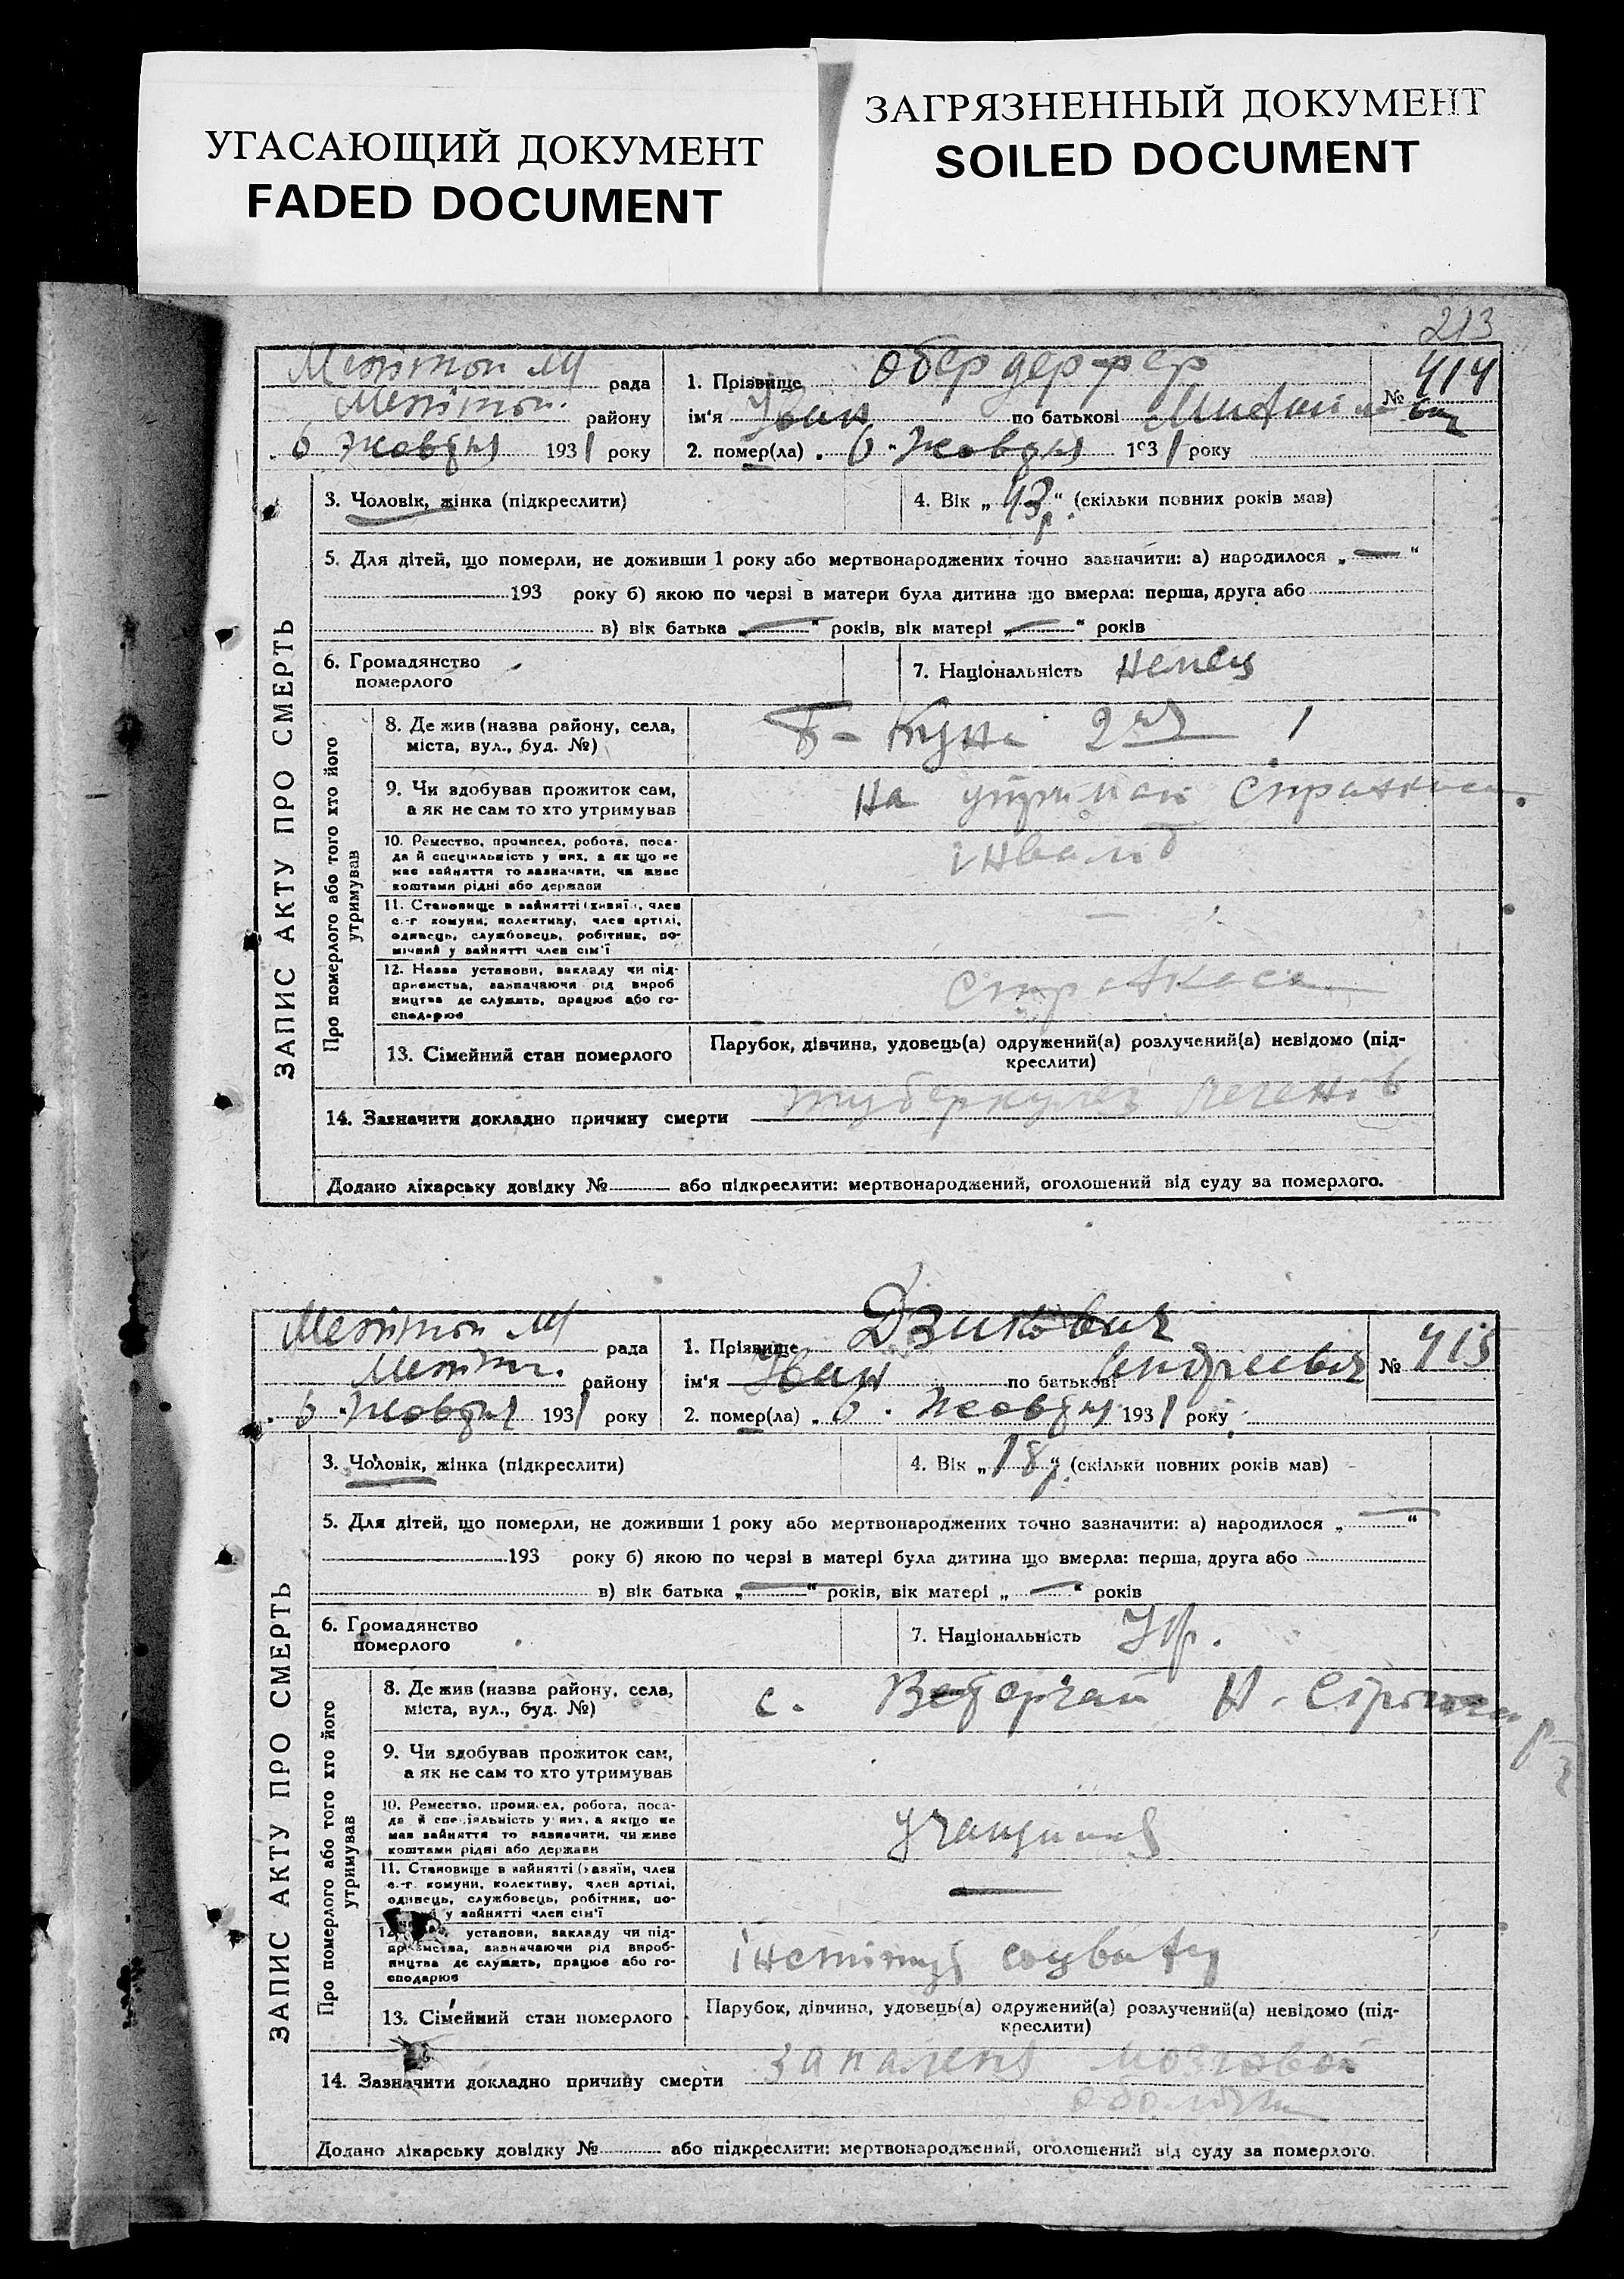 УГАСАЮЩИЙ ДОКУМЕНТ
FADED DOCUMENT
ЗАГРЯЗНЕННЫЙ ДОКУМЕНТ
SOILED DOCUMENT
213
рада
району
6 Жовтня 1931 року
1. Прізвище Обердерфер
№ 414
ім'я Іван по батькові
2. помер(ла) 6 Жовтня 1931 року
ЗАПИС АКТУ ПРО СМЕРТЬ
3. Чоловік, жінка (підкреслити)
4. Вік „43 р.“ (скільки повних років мав)
5. Для дітей, що померли, не доживши 1 року або мертвонароджених точно зазначити: а) народилося „ — “
193 року б) якою по черзі в матери була дитина що вмерла: перша, друга або
в) вік батька „ — “ років, вік матері „ — “ років
6. Громадянство
померлого
7. Національність немец
Про померлого або того хто його
утримував
8. Де жив (назва району, села,
міста, вул., буд. №)
9. Чи здобував прожиток сам,
а як не сам то хто утримував
на
10. Ремество, промисел, робота, поса-
да й спеціяльність у них, а як що не
має зайняття то зазначати, чи живе
коштами рідні або держави
інвалід
11. Становище в зайнятті (хазяїн, член
с.-г. комуни, колективу, член артілі,
одинець, службовець, робітник, по-
мічний у зайнятті член сім'ї
12. Назва установи, закладу чи під-
приємства, зазначаючи рід вироб
ництва де служить, працює або го-
сподарює
Страхкаса
13. Сімейний стан померлого
Парубок, дівчина, удовець(а) одружений(а) розлучений(а) невідомо (під-
креслити)
14. Зазначити докладно причину смерти туберкулез легенів
Додано лікарську довідку № або підкреслити: мертвонароджений, оголошений від суду за померлого.
рада
району
6 Жовтня 1931 року
1. Прізвище Дзикович
№ 415
ім'я Іван по батькові Андреевич
2. помер(ла) 6 Жовтня 1931 року
ЗАПИС АКТУ ПРО СМЕРТЬ
3. Чоловік, жінка (підкреслити)
4. Вік „18 р.“ (скільки повних років мав)
5. Для дітей, що померли, не доживши 1 року або мертвонароджених точно зазначити: а) народилося „ — “
193 року б) якою по черзі в матері була дитина що вмерла: перша, друга або
в) вік батька „ — “ років, вік матері „ — “ років
6. Громадянство
померлого
7. Національність Укр.
Про померлого або того хто його
утримував
8. Де жив (назва району, села,
міста, вул., буд. №)
с.
9. Чи здобував прожиток сам,
а як не сам то хто утримував
10. Ремество, промисел, робота, поса-
да й спеціяльність у них, а якщо не
має зайняття то зазначити, чи живе
коштами рідні або держави
учащийся
11. Становище в зайнятті (хазяїн, член
с.-г. комуни, колективу, член артілі,
одинець, службовець, робітник, по-
у зайнятті член сім'ї
установи, закладу чи під-
приємства, зазначаючи рід вироб-
ництва де служить, працює або го-
сподарює
13. Сімейний стан померлого
Парубок, дівчина, удовець(а) одружений(а) розлучений(а) невідомо (під-
креслити)
14. Зазначити докладно причину смерти запаленя мозговой
Додано лікарську довідку № або підкреслити: мертвонароджений, оголошений від суду за померлого.